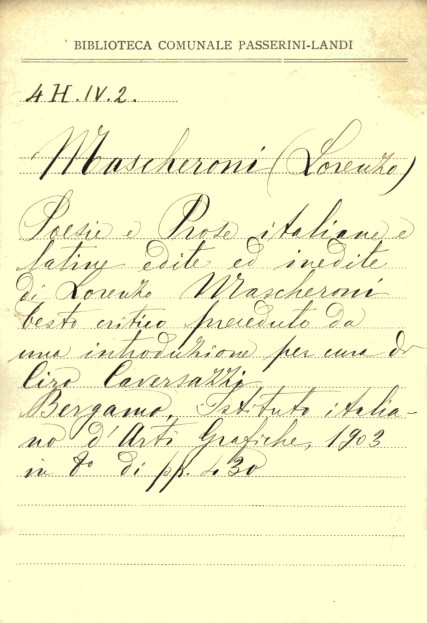 BIBLIOTECA COMUNALE PASSERINI-LANDI
4 H. IV. 2.
Mascheroni (Lorenzo)
Poesie e Prose italiane e
latine edite ed inedite
di Lorenzo Mascheroni
testo critico preceduto da
una introduzione per cura di
Ciro Caversazzi
Bergamo, Istituto italia-
no d'Arti Grafiche, 1903
in 8º di pp. 430